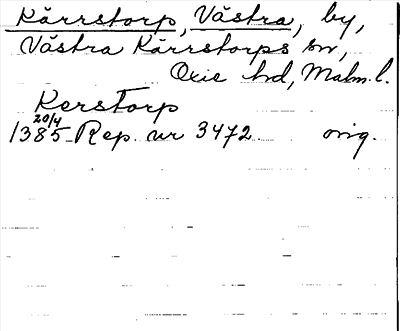 Kärrstorp, Västra, by,
Västra Kärrstorps sn,
Oxie hd, Malm. l.
Kerstorp
20/4
1385 Rep. nr 3472. orig.